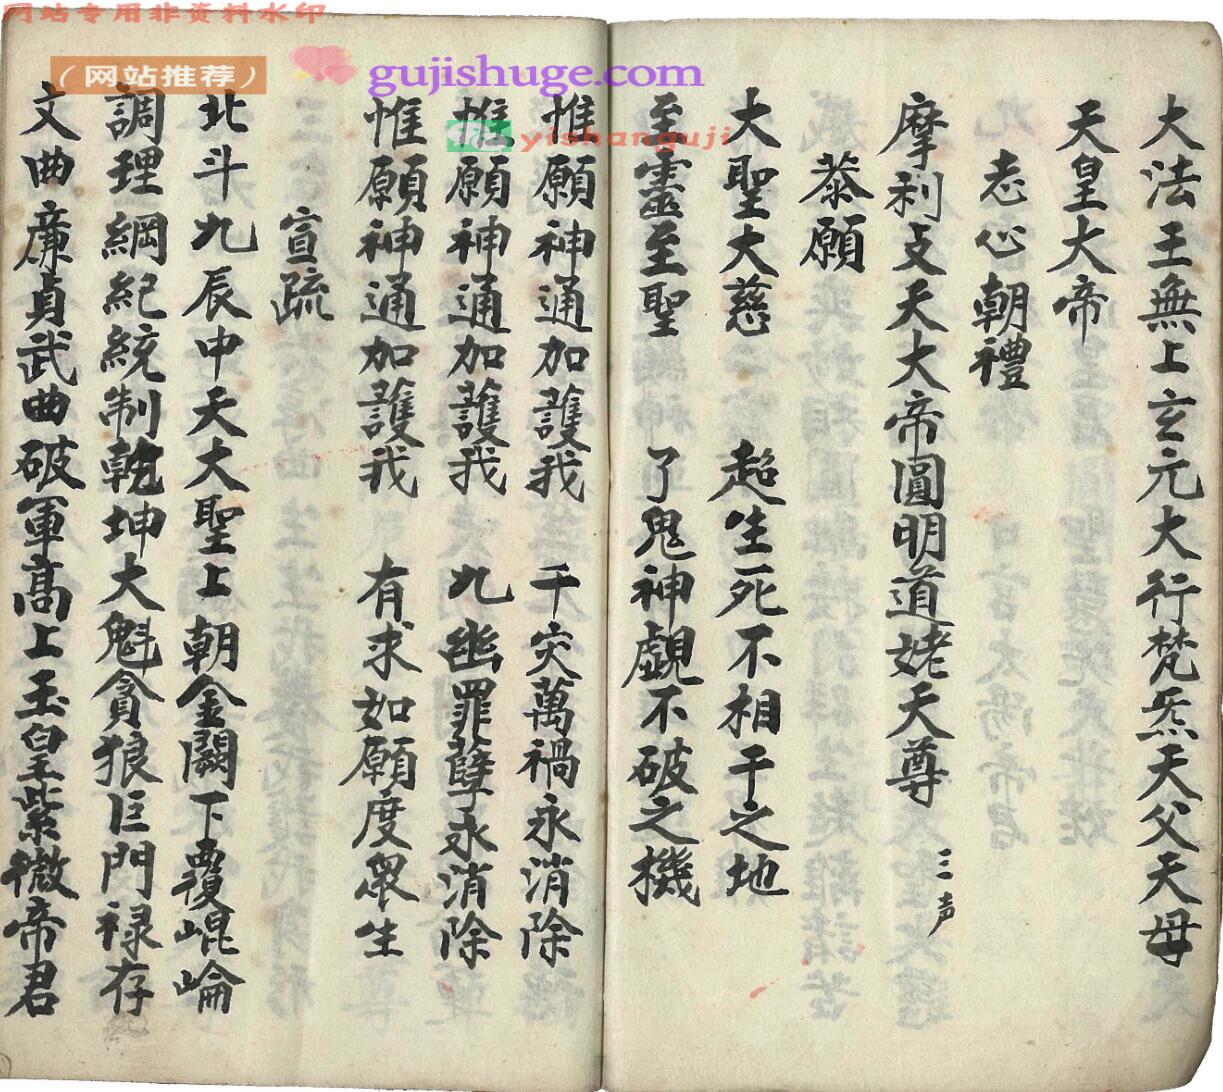 大法王無上玄元大行梵炁天父天母
天皇大帝
志心朝禮
摩利攴天大帝圓明道姥天尊 三声
恭願
大聖大慈 超生死不相干之地
至靈至聖 了鬼神覷不破之機
惟願神通加護我 千灾萬禍永消除
惟願神通加護我 九幽罪孽永消除
惟願神通加護我 有求如願度眾生
宣疏
北斗九辰中天大聖上朝金闕下覆崐崘
調理綱紀統制乾坤大魁貪狼巨門禄存
文曲廉貞武曲破軍高上玉皇紫微帝君
网站专用非资料水印
（网站推荐）
gujishuge.com
yishanguji